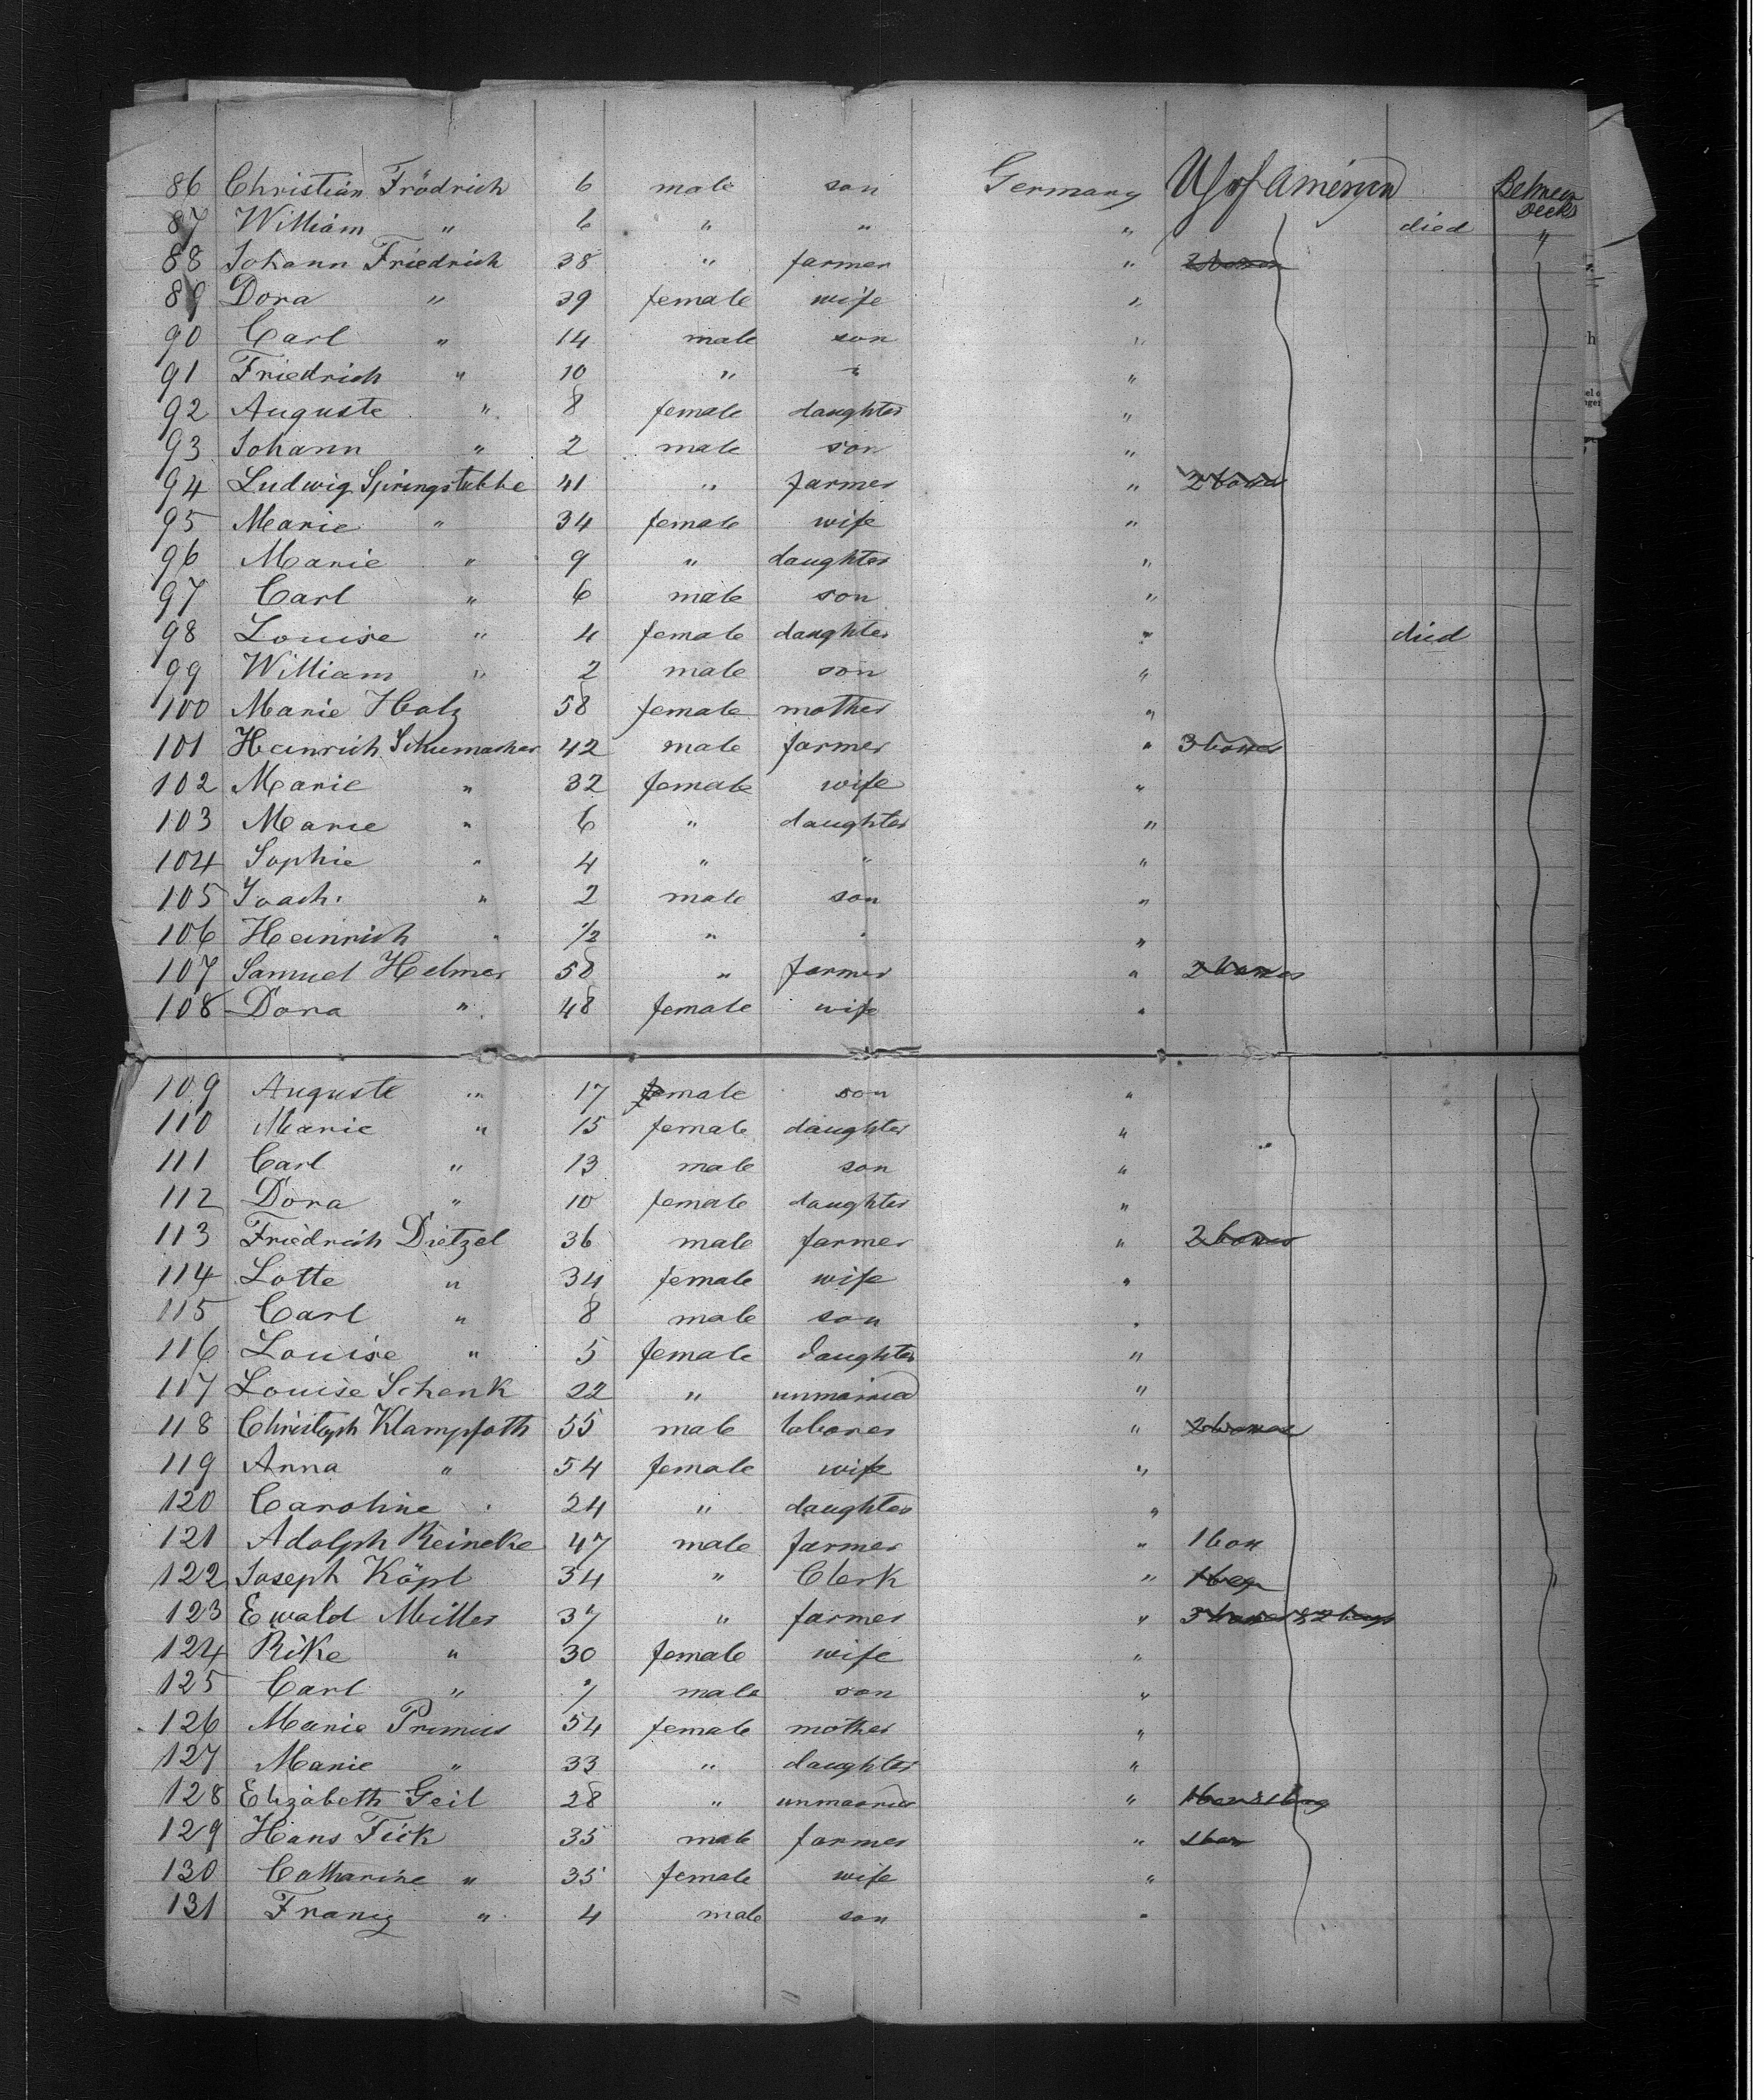 86 Christian Frödrich 6 male son Germany U S of America Between Decks
87 William " 6 " " " died "
88 Johann Friedrich 38 " farmer "
89 Dora " 39 female wife "
90 Carl " 14 male son "
91 Friedrich " 10 " " "
92 Auguste " 8 female daughter "
93 Johann " 2 male son "
94 Ludwig Springstubbe 41 " farmer " 2 boxes
95 Marie " 34 female wife "
96 Marie " 9 " daughter "
97 Carl " 6 male son "
98 Louise " 4 female daughter " died
99 William " 2 male son "
100 Marie Holz 58 female mother "
101 Heinrich Schumacher 42 male farmer " 3 boxes
102 Marie " 32 female wife "
103 Marie " 6 " daughter "
104 Sophie " 4 " " "
105 Joach: " 2 male son "
106 Heinrich " 1/2 " " "
107 Samuel Helmer 58 " farmer " 2 boxes
108 Dora " 48 female wife "
109 Auguste " 17 female son "
110 Marie " 15 female daughter "
111 Carl " 13 male son "
112 Dora " 10 female daughter "
113 Friedrich Dietzel 36 male farmer " 2 boxes
114 Lotte " 34 female wife "
115 Carl " 8 male son "
116 Louise " 5 female daughter "
117 Louise Schenk 22 " unmarried "
118 Christoph Klampfoth 55 male laborer " 2 boxes
119 Anna " 54 female wife "
120 Caroline " 24 " daughter "
121 Adolph Reineke 47 male farmer " 1 box
122 Joseph Köpl 34 " Clerk " 1 bag
123 Ewald Miller 37 " farmer " 3 boxes & 2 bags
124 Rike " 30 female wife "
125 Carl " 7 male son "
126 Marie Primus 54 female mother "
127 Marie " 33 " daughter "
128 Elizabeth Geil 28 " unmarried " 1 box & 1 bag
129 Hans Fick 35 male farmer " 1 box
130 Catharine " 35 female wife "
131 Franz " 4 male son "